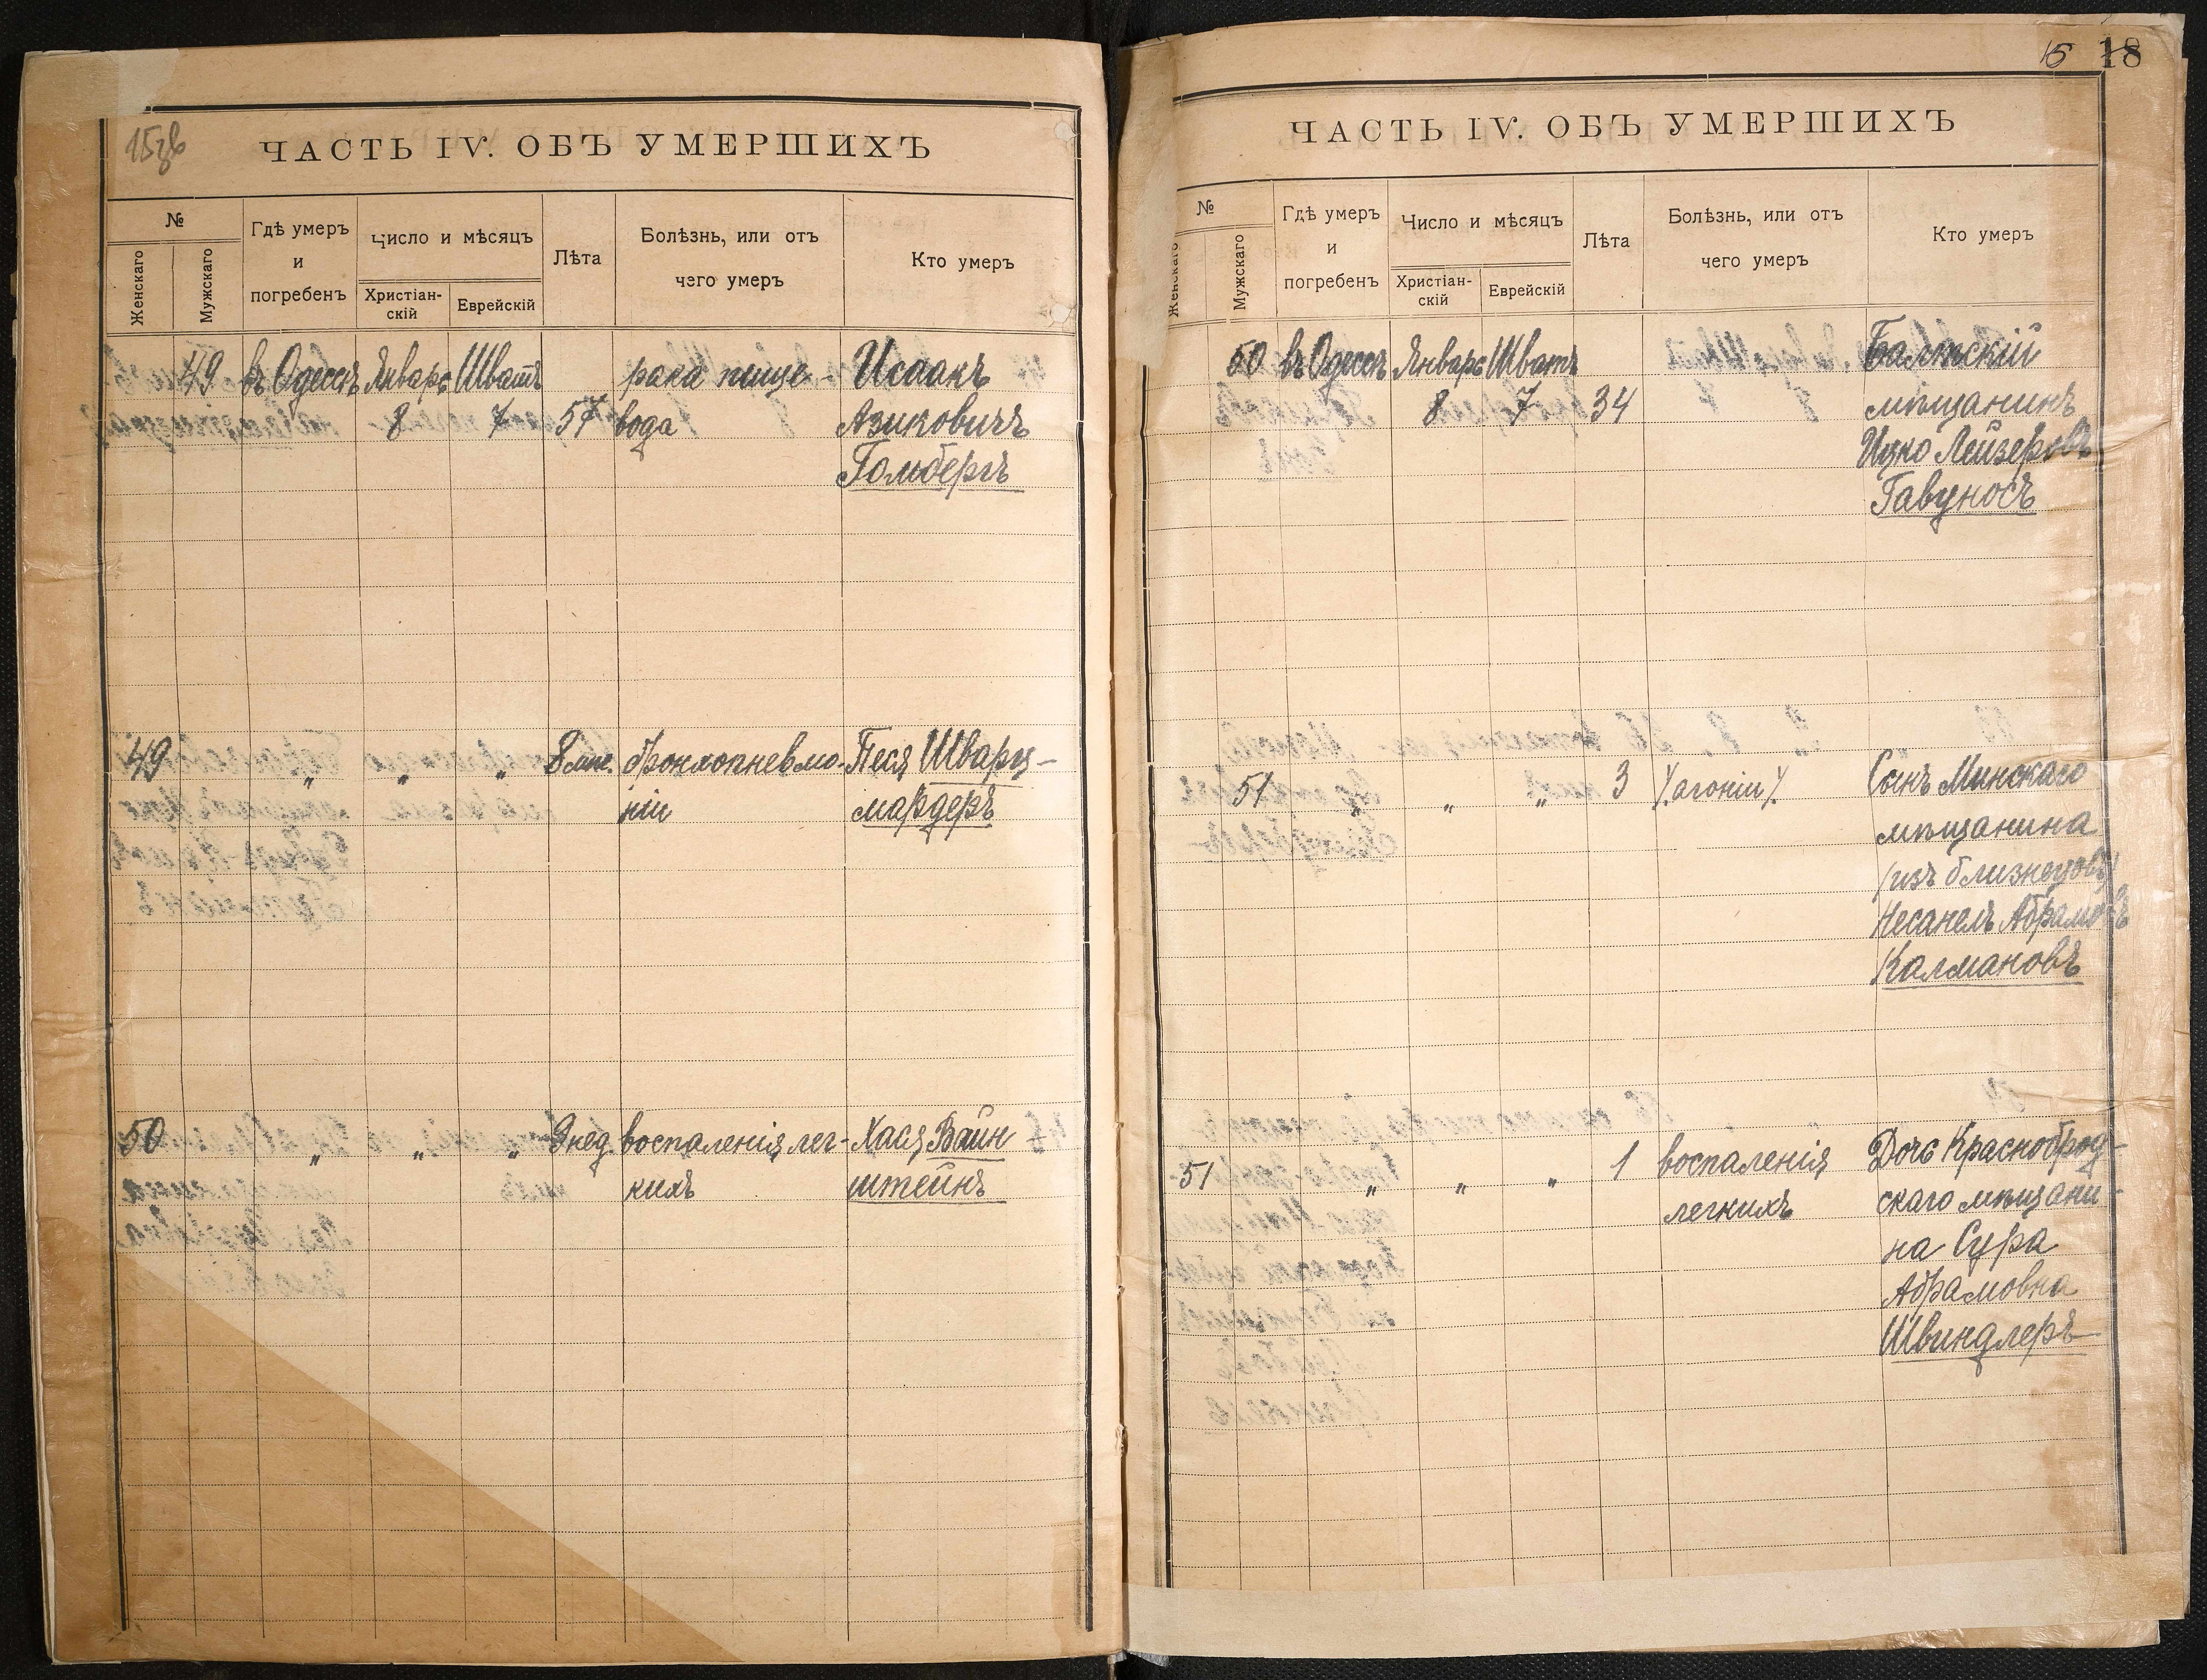 15зв
ЧАСТЬ IV. ОБЪ УМЕРШИХЪ
№
Женскаго
Мужскаго
Гдѣ умеръ
и
погребенъ
Число и мѣсяцъ
Христіан-
скій
Еврейскій
Лѣта
Болѣзнь, или отъ
чего умеръ
Кто умеръ
49 въ Одессѣ Январь Шватъ рака пище- Исаакъ
8 7 57 вода Азиковичъ
Гольбергъ
49 „ „ „ 8 мѣс. бронхопневмо- Песя Шварц-
ніи мардеръ
50 „ „ „ 3 нед. воспаленія лег- Хася Вайн
кихъ штейнъ
15 18
ЧАСТЬ IV. ОБЪ УМЕРШИХЪ
№
Женскаго
Мужскаго
Гдѣ умеръ
и
погребенъ
Число и мѣсяцъ
Христіан-
скій
Еврейскій
Лѣта
Болѣзнь, или отъ
чего умеръ
Кто умеръ
50 въ Одессѣ Январь Шватъ Балтскій
8 7 34 мѣщанинъ
Ицко Лейзеровъ
Гавуносъ
51 „ „ „ 3 /.агоніи/. Сынъ Минскаго
мѣщанина
/изъ близнецовъ/
Несанель Абрамовъ
Калмановъ
51 „ „ „ 1 воспаленія Дочь Красноброд-
легкихъ скаго мѣщани-
на Сура
Абрамовна
Швиндлеръ